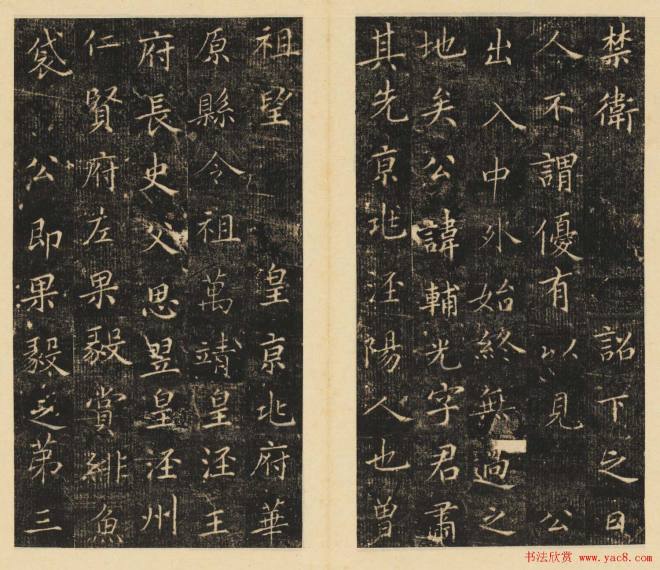 禁衛　詔下之日
人不謂優有以見　公
出入中外始終無過之
地矣公諱輔光字君肅
其先京兆涇陽人也曾
祖望　皇京兆府華
原縣令祖萬靖皇涇王
府長史父思翌皇涇州
仁賢府左果毅賞緋魚
袋　公即果毅之第三
书法欣赏 www.yac8.com